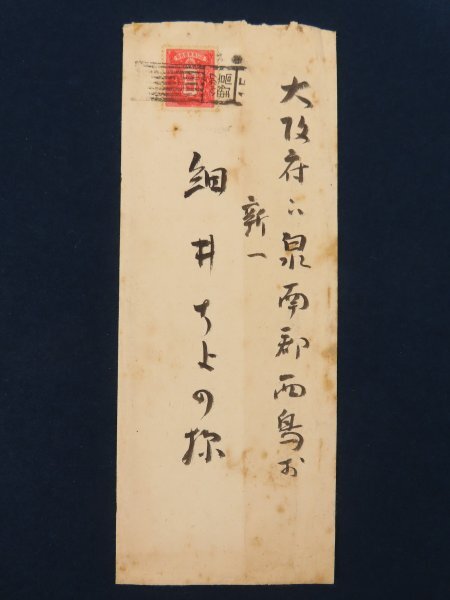 大阪府下泉南郡西鳥取
新一
細井ちよの様